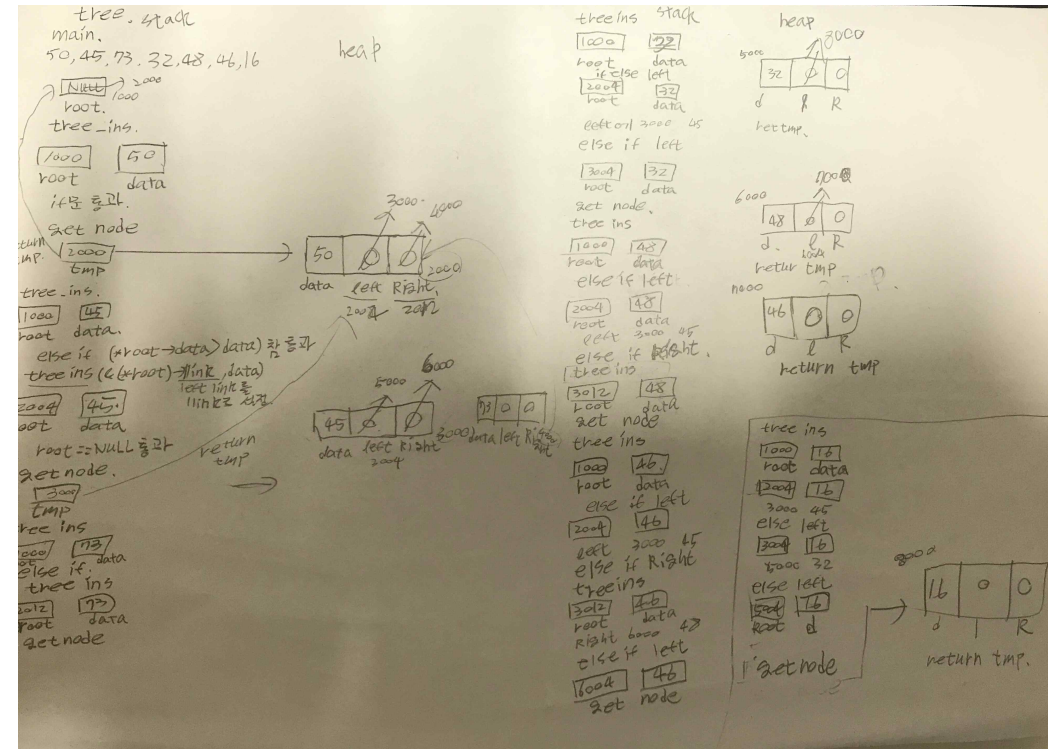 tree. stack
main.
50, 45, 73, 32, 48, 46, 16
NULL → 2000
1000
root.
tree_ins.
1000 50
root data
if문 통과.
get node
return tmp.
2000
tmp
tree_ins.
1000 45
root data.
else if (*root→data>data) 참 통과
tree ins (&(*root)→llink, data)
left link를
llink로 설정
2004 45.
root data
root == NULL 통과
get node.
return tmp
3000
tmp
tree ins
1000 73
root data
else if.
tree ins
2012 73
root data
get node
heap
3000. 4000
50 0 0
2000
data left Right,
2004 2012
5000 6000
45 0 0
3000
data left Right
2004
73 0 0
data left Right
tree ins stack
1000 32
root data
if else left
2004 32
root data
left에 3000 45
else if left
3004 32
root data
get node.
tree ins
1000 48
root data
else if left
2004 48
root data
left 3000 45
else if Right.
tree ins
3012 48
root data
get node
tree ins
1000 46.
root data
else if left
2004 46
left 3000 45
else if Right
tree ins
3012 46
root data
Right 6000 48
else if left
6004 46
get node
heap
8000
5000
32 0 0
d l R
ret tmp.
7000
6000
48 0 0
d. l R
retur tmp
7000
46 0 0
d l R
return tmp
tree ins
1000 16
root data
2004 16
3000 45
else left
3004 16
5000 32
else left
5004 16
Root d
get node
8000
16 0 0
d l R
return tmp.